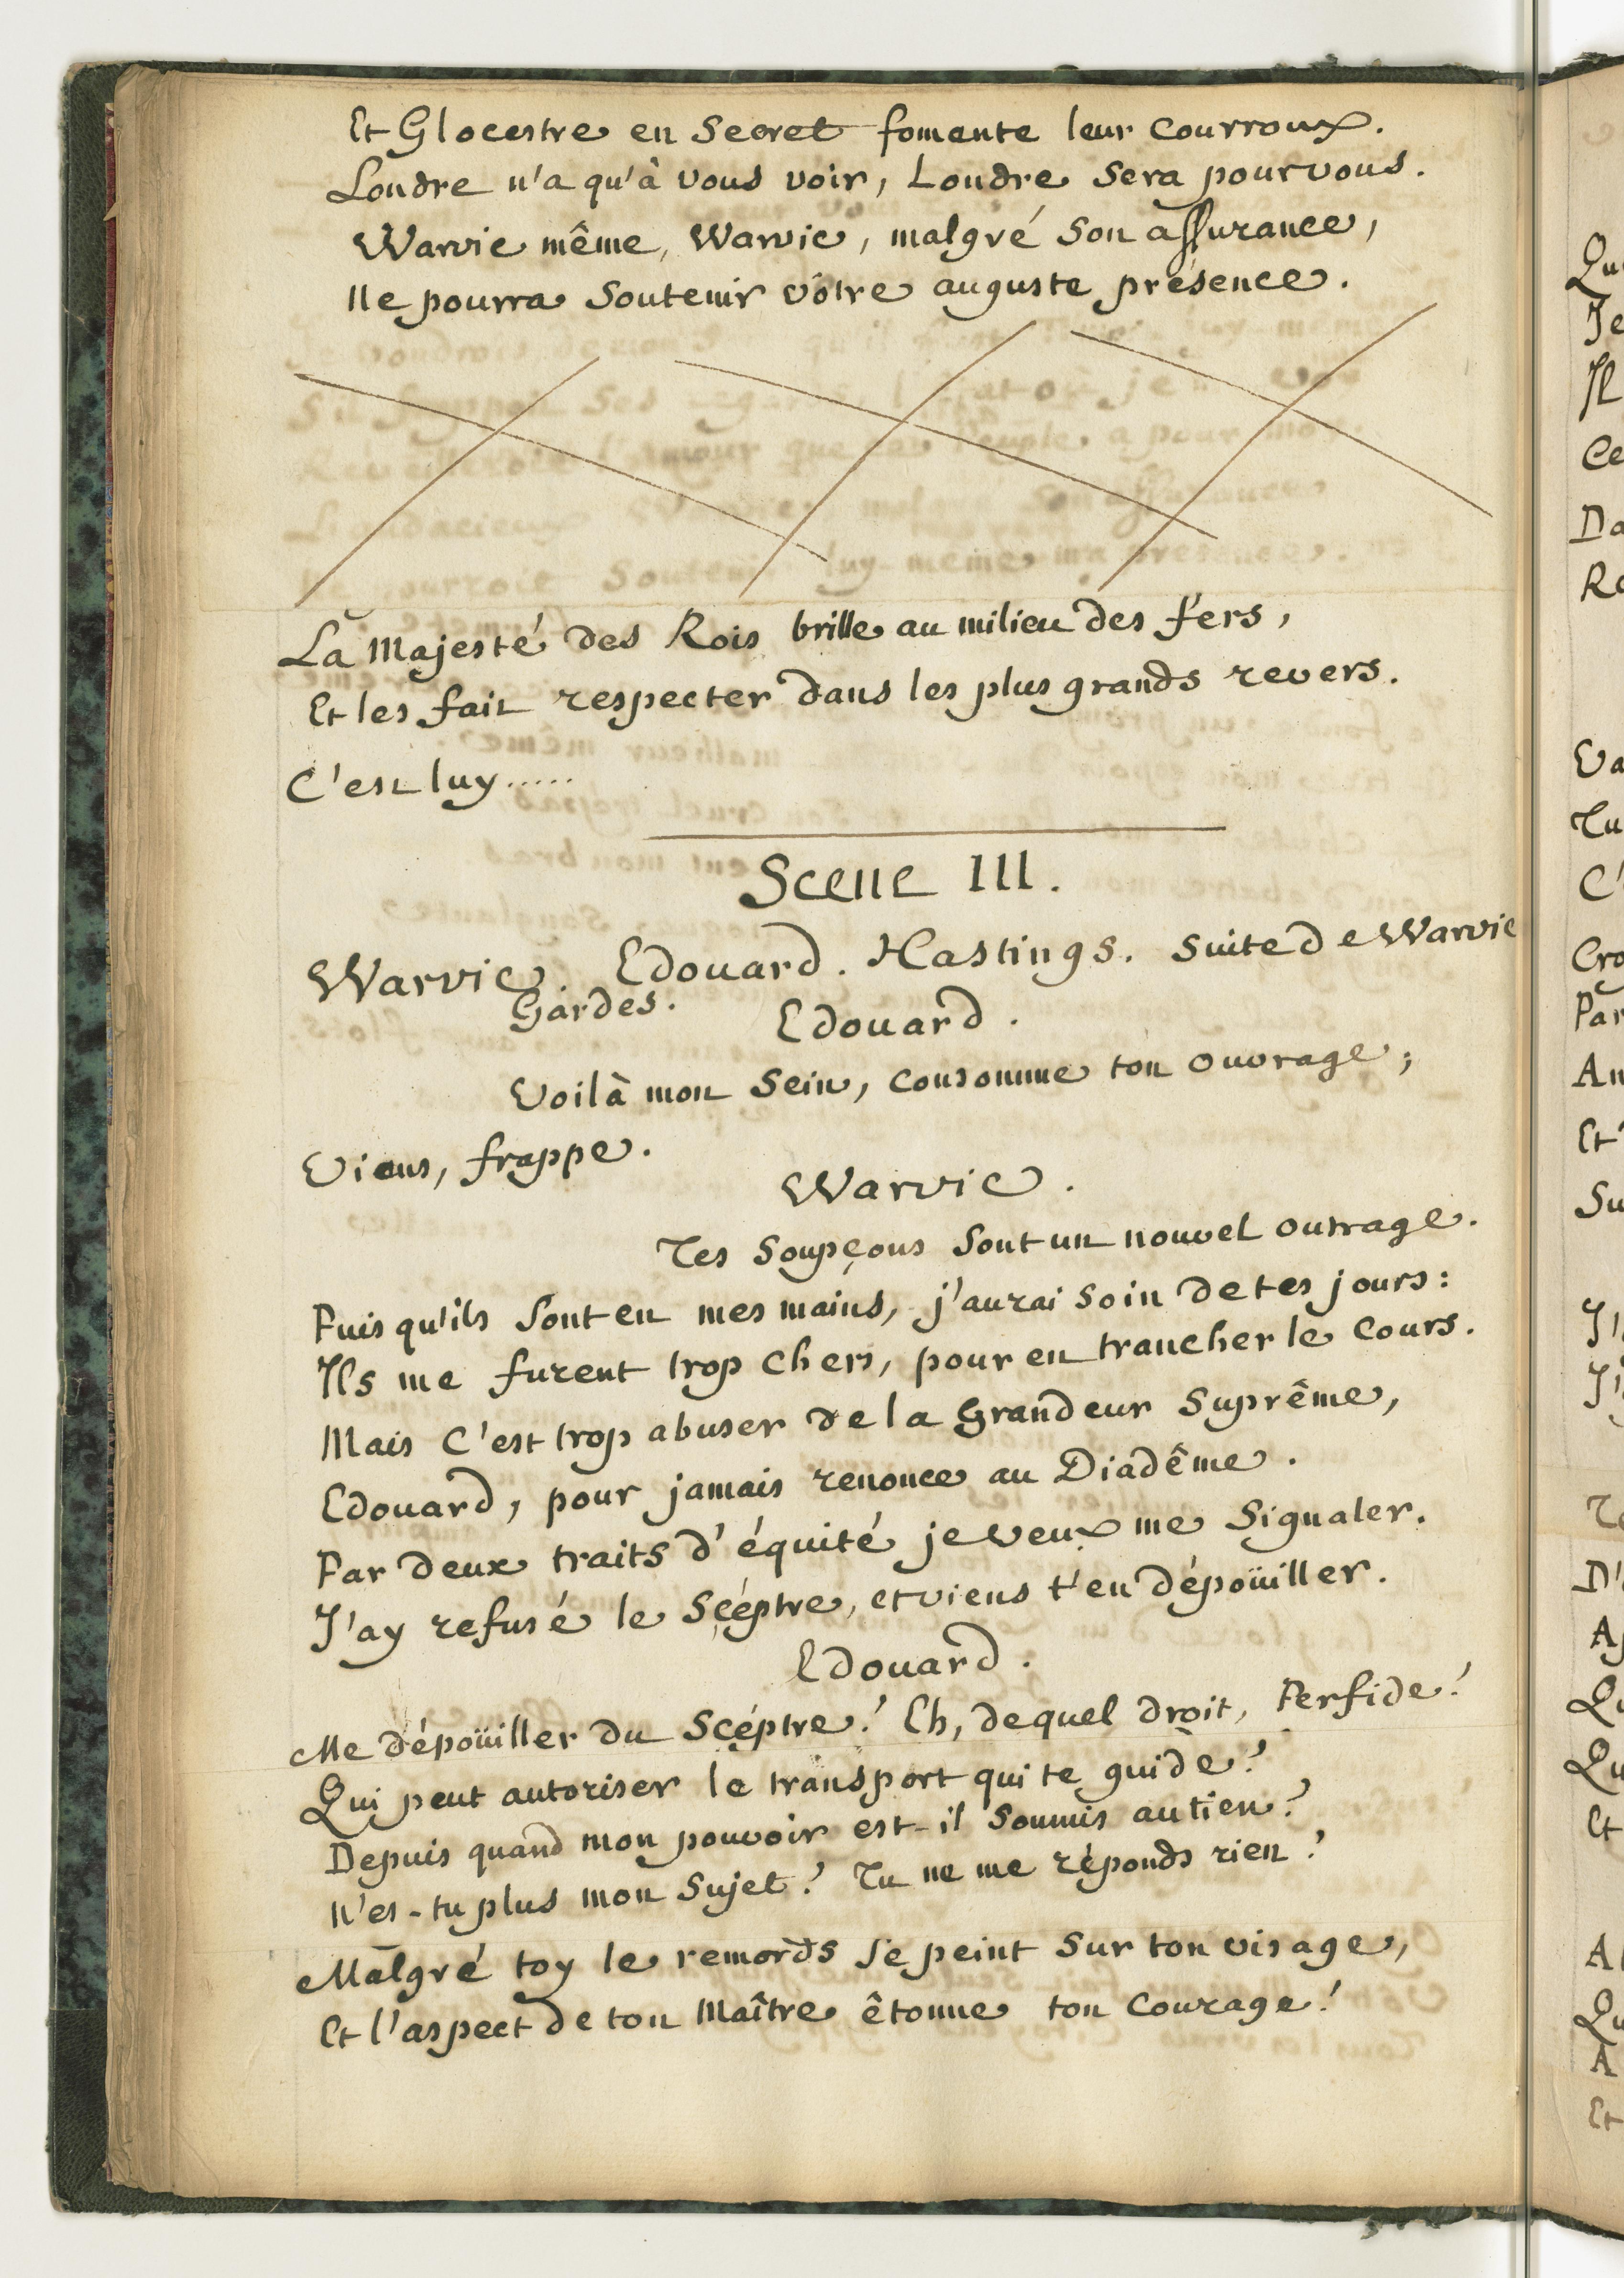 Et Glocestre en Secret fomente leur Courroux.
Londre n'a qu'à vous voir, Londre Sera pour vous.
Warvic même, Warvic, malgré Son assurance,
Ne pourra Soutenir vôtre auguste présence.
La Majesté des Rois brille au milieu des fers,
Et les fait respecter dans les plus grands revers.
C'est luy.....
Scene III.
Warvic. Edouard. Hastings. Suite de Warvic
Gardes.
Edouard.
Voilà mon Sein, Consomme ton Ouvrage;
Viens, frappe.
Warvic.
Tes Soupçons Sont un nouvel outrage.
Puis qu'ils Sont en mes mains, j'aurai Soin de tes jours:
Ils me furent trop Chers, pour en trancher le Cours.
Mais C'est trop abuser de la Grandeur Suprême,
Edouard, pour jamais renonce au Diadême.
Par deux traits d'équité je veux me Signaler.
J'ay refusé le Scéptre, et viens t'en dépoüiller.
Edouard.
Me dépoüiller du Scéptre! Eh, de quel droit, Perfide!
Qui peut autoriser le transport qui te guide?
Depuis quand mon pouvoir est-il Soumis au tien?
N'es-tu plus mon Sujet? Tu ne me réponds rien?
Malgré toy le remords Se peint Sur ton visage,
Et l'aspect de ton Maître êtonne ton Courage!